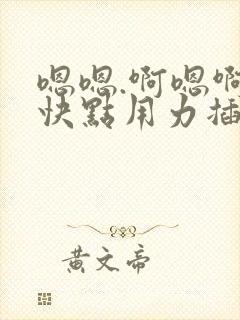 嗯嗯.啊嗯啊
快點用力插
黄文帝